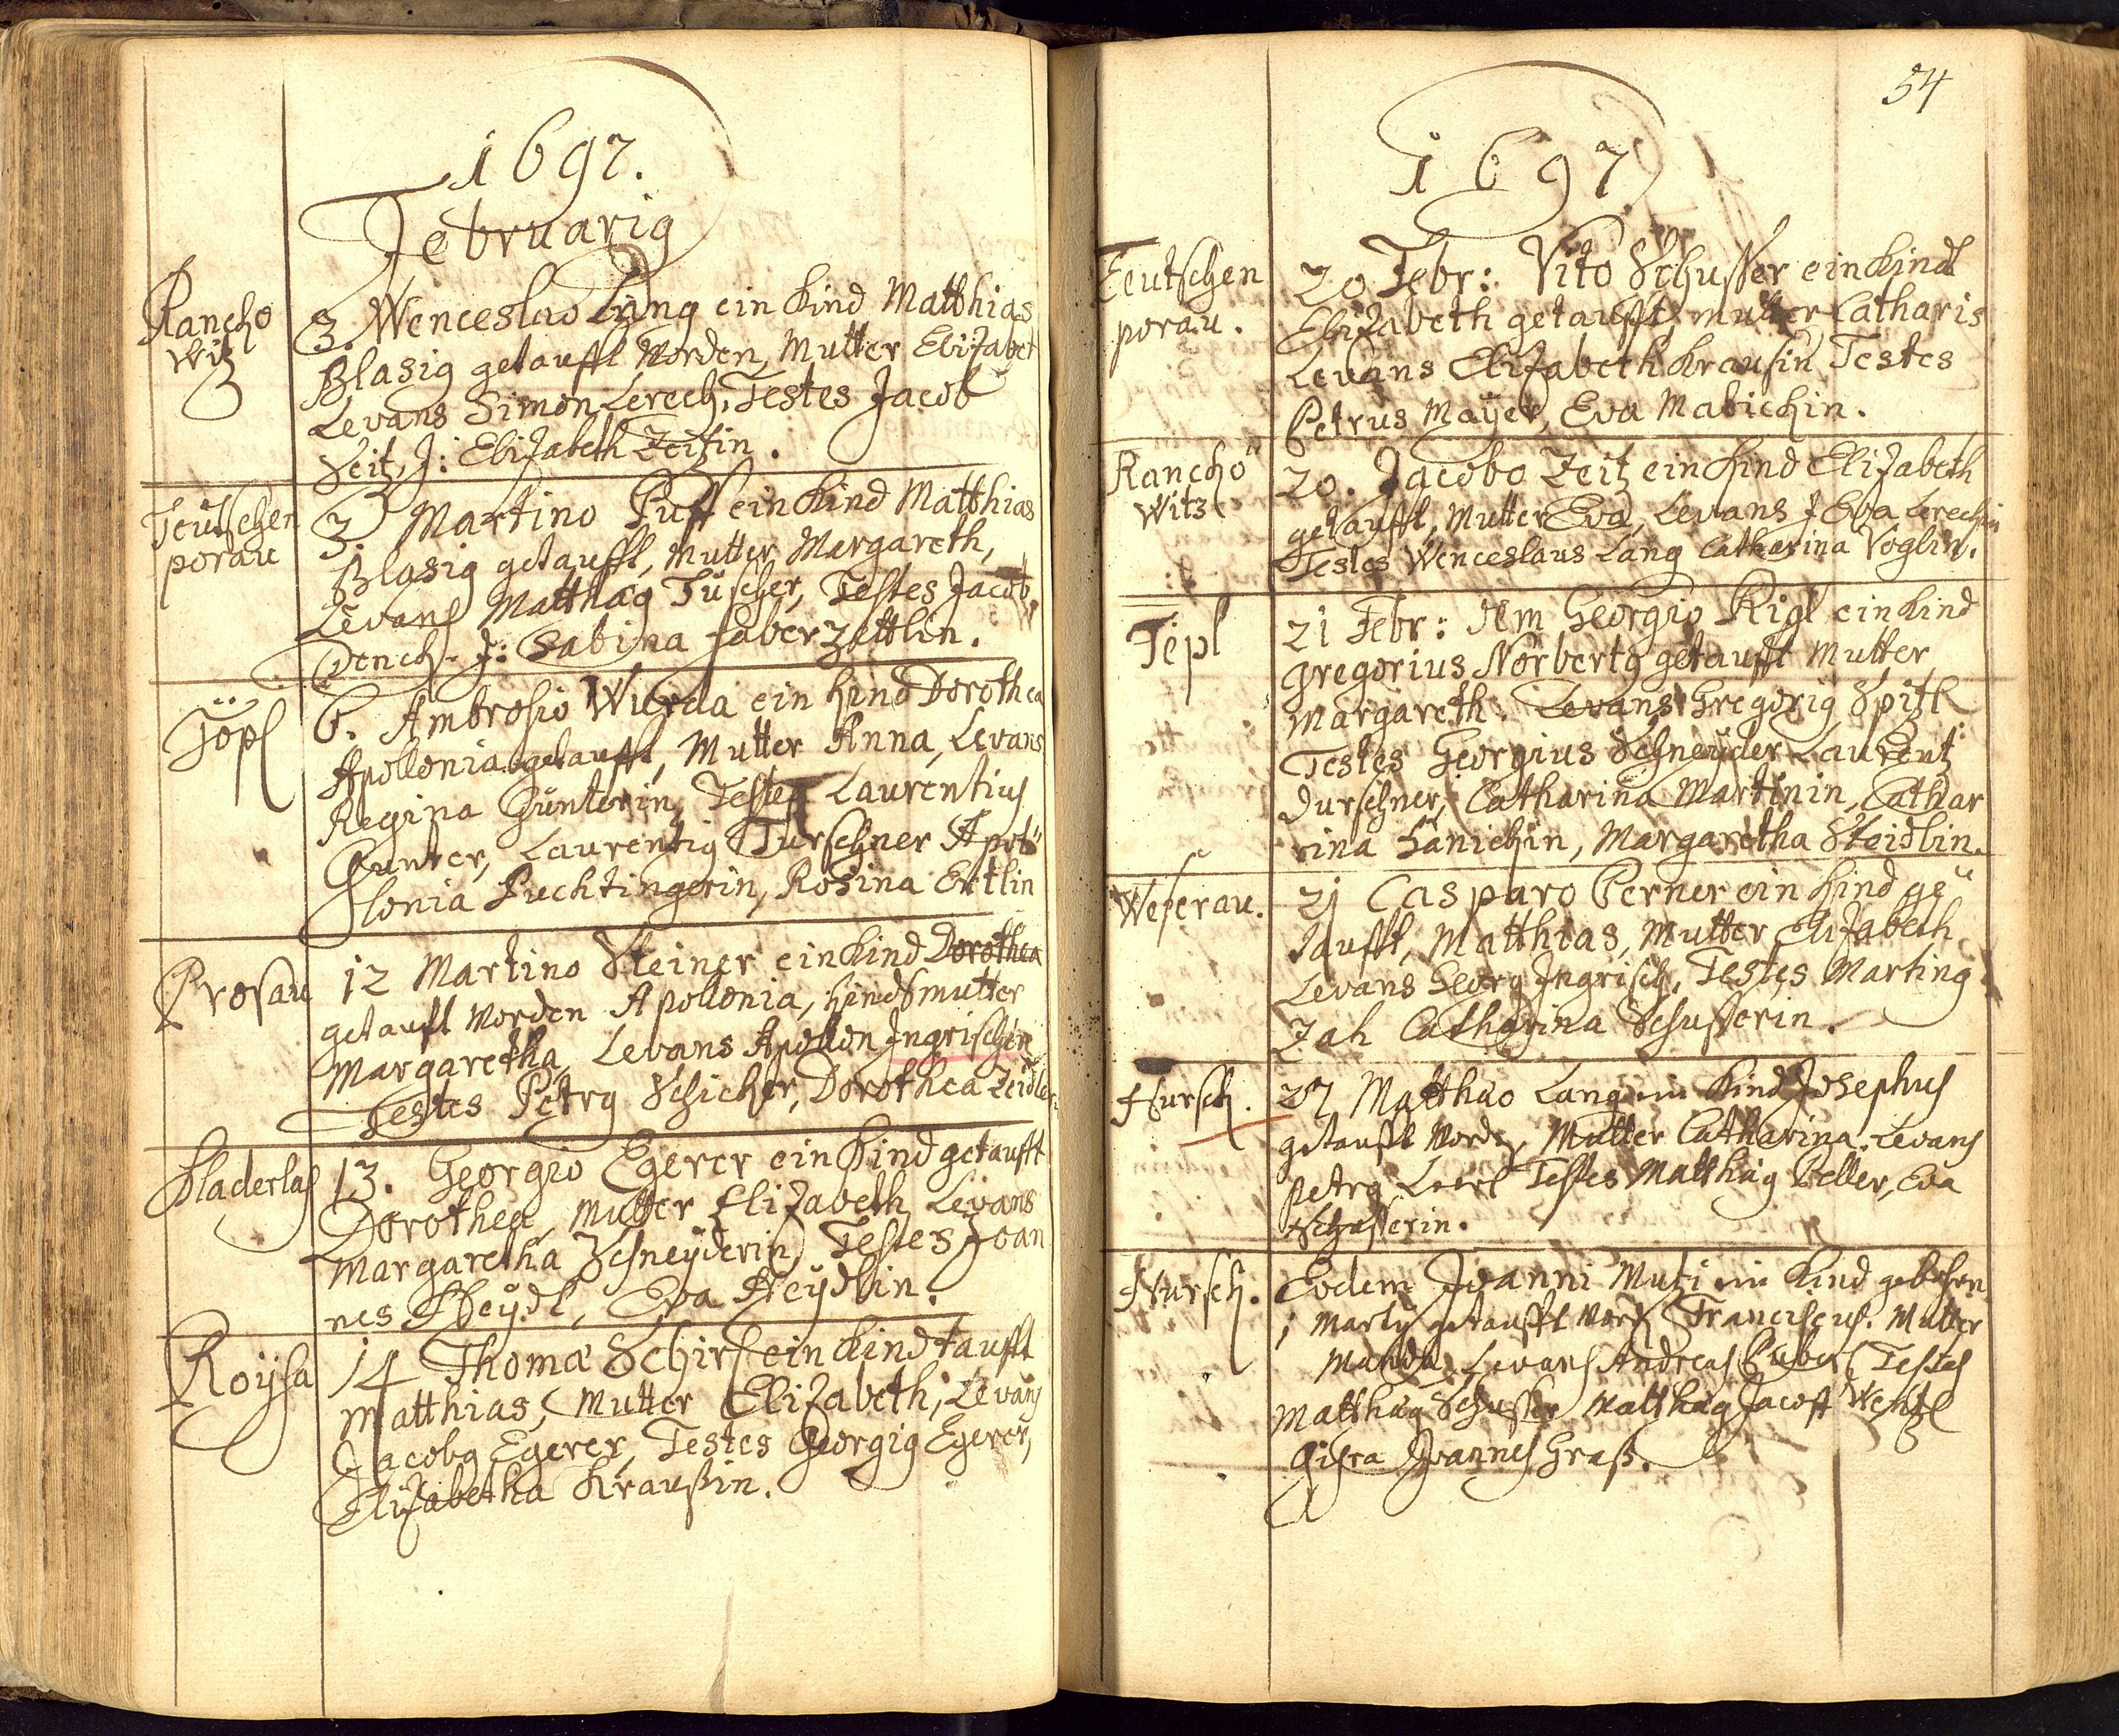 1697.
Februarig
Rancho
witz
3. Wenceslao Lang ein Kind Matthias
Blasig getaufft worden, Mutter Elizabet
Levans Simon Lerech, Testes Jacob
Zeit, J: Elizabeth Zeitzin.
Teutschen
porau
3. Martino Puff ein Kind Matthias
Blasig getaufft, Mutter Margareth,
Levans Matthäg Tuscher, Testes Jacob
Dench. J: Sabina haberzättlin.
Töpl
6. Ambrosio Wurda ein Kind Dorothea
Apollonia getaufft, Mutter Anna, Levans
Regina Günterin, Testes Laurentius
Gunter, Laurentig Turschner Apol
lonia Puchtingerin, Rosina Ertlin
Prosau
12 Martino Steiner ein Kind Dorothea
getauft worden Apollonia, Kindsmutter
Margaretha, Levans Apollon Ingrischen
Testes Petrg Schicker, Dorothea Zeidler
Hladerlas
13. Georgio Egerer ein Kind getaufft
Dorothea, Mutter Elizabeth Levans
Margaretha Schneyderin, Testes Joan
nes Heydl, Eva Heydlin.
Roysa
14 Thomæ Schirl ein Kind taufft
Matthias, Mutter Elizabeth, Levans
Jacobg Egerer, Testes Georgig Egerer,
Elizabetha Kraußin.
54
1697
Teutschen
porau.
20 Febr: Vito Schusser ein Kind
Elizabeth getaufft, mutter Catharis
Levans Elizabeth Krausin Testes
Petrus Mayer, Eva Mabichin.
Rancho
witz
20. Jacobo Zeitz ein Kind Elizabeth
getaufft, Mutter Eva, Levans J Eva Lerechin
Testes Wenceslaus Lang Catharina Voglin.
Tepl
21 Febr: dem Georgio Rigl ein Kind
Gregorius Norbertg getaufft Mutter
Margareth. Levans Gregorig Spitzl
Testes Georgius Schneyder Laurentz
Durschner, Catharina Martinin, Cathar
rina Hänichin, Margaretha Steidlin.
Weserau.
21 Casparo Perner ein Kind ge
taufft, Matthias, Mutter Elizabeth
Levans Georg Ingrisch, Testes Marting
Zah Catharina Schusserin.
Hursch.
27 Matthäo Lang ein Kind Josephus
getaufft worden, Mutter Catharina. Levans
Petrg Testes Matthäg Beller, Eva
Schusserin.
Hursch.
Eodem Joanni Mutz ein Kind gebohren
1 Marty getaufft word Franciscus. Mutter
Levans Andreas Testes
Matthäg Schusser Matthäg Jacost Wentzl
Joannes Graß.